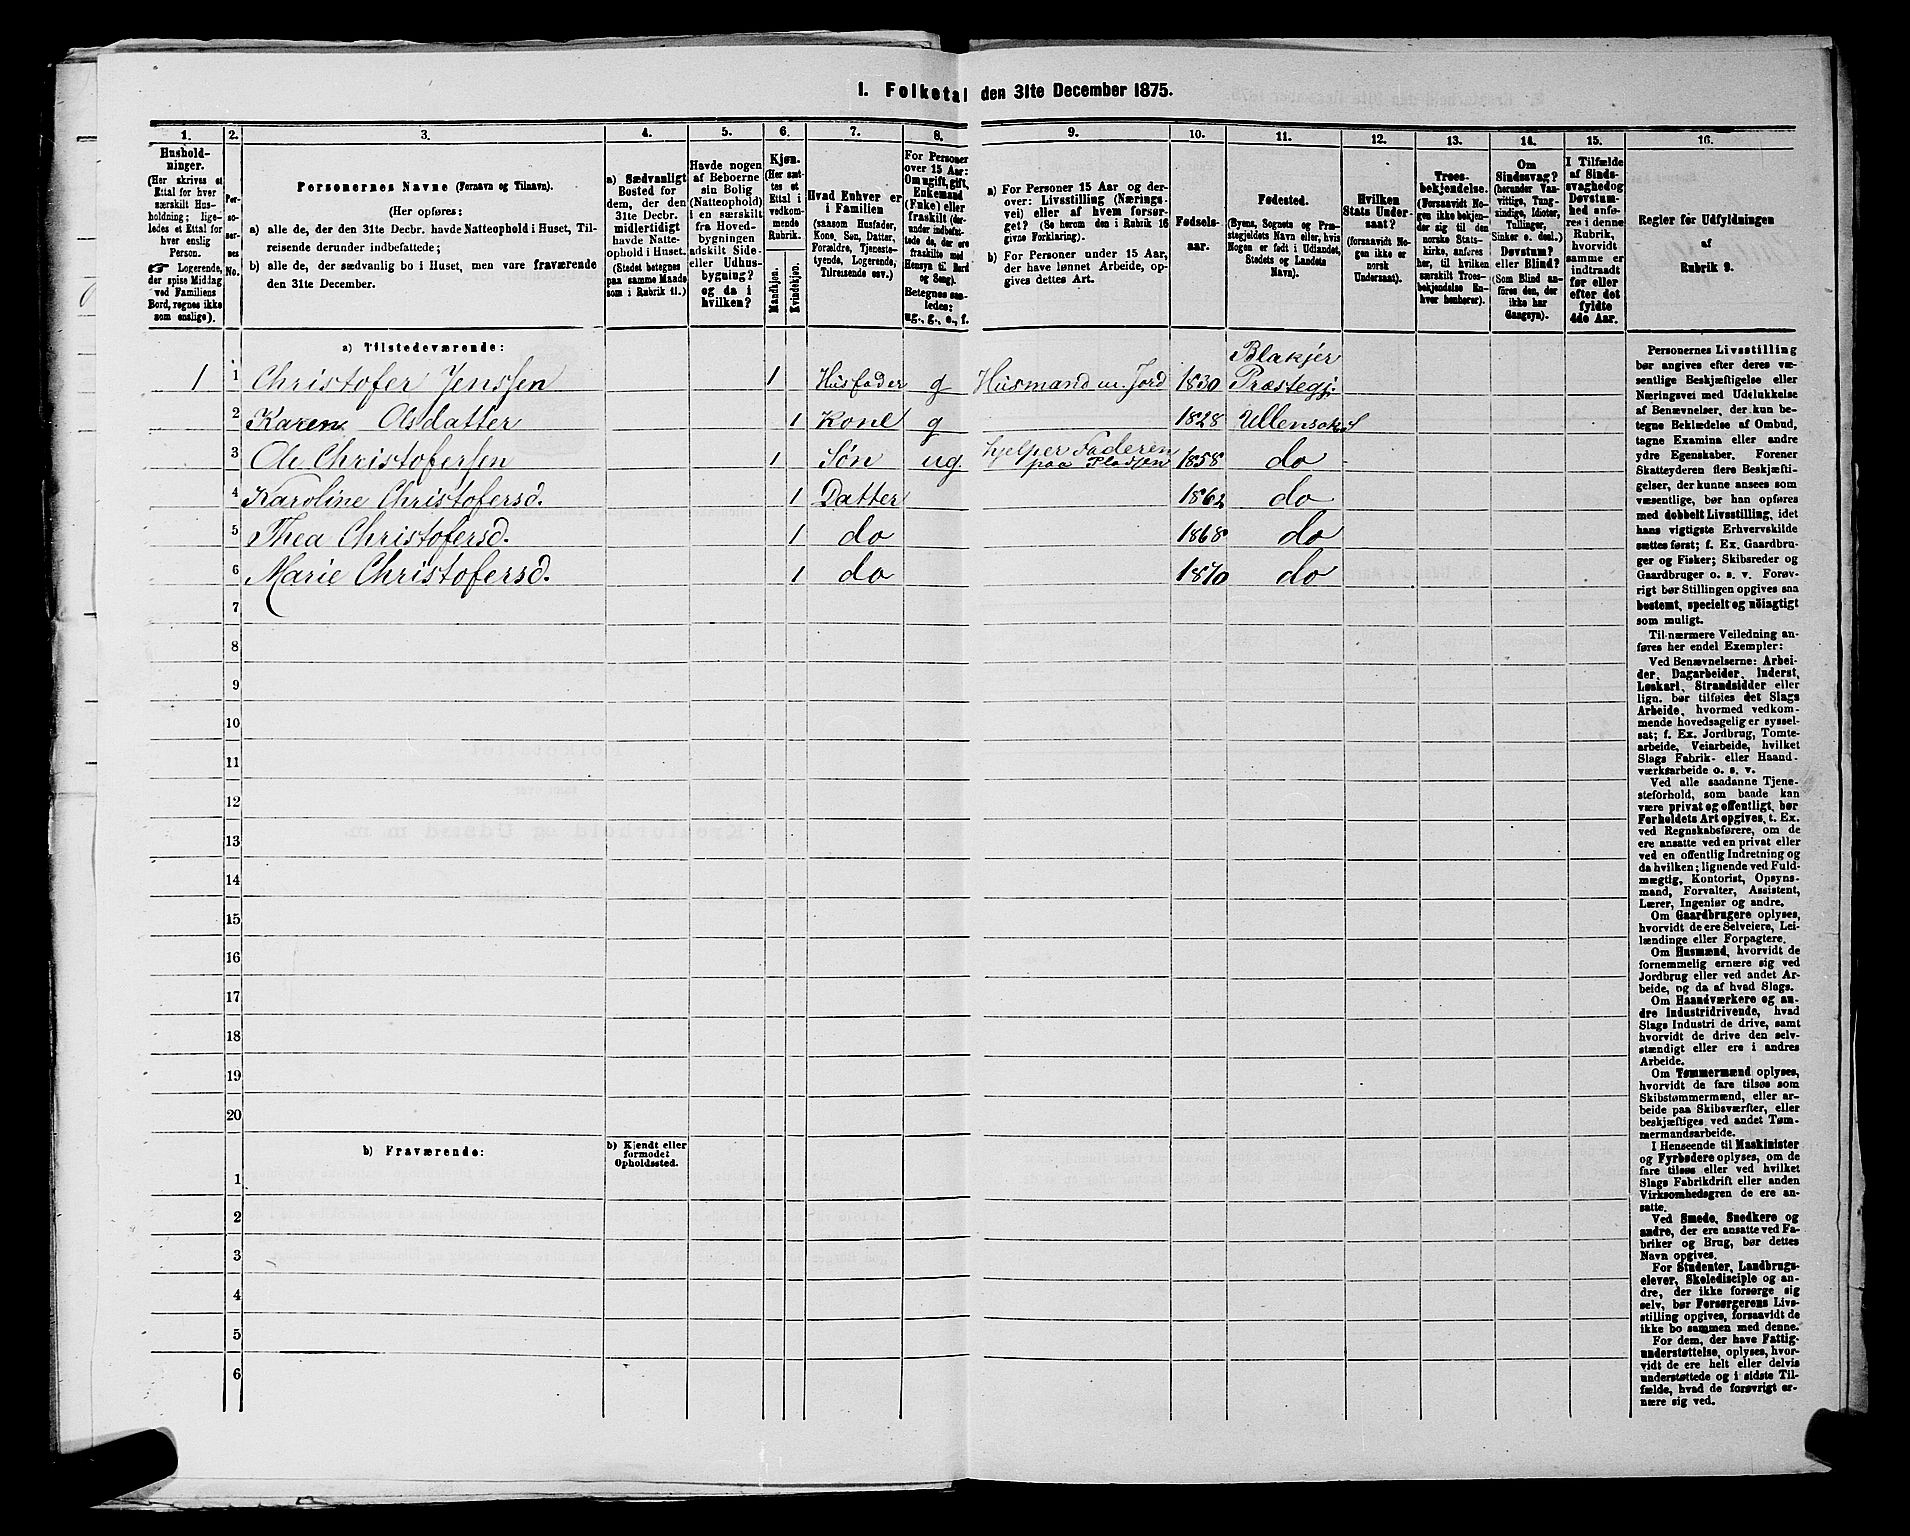 1. Folketal den 31te December 1875.
1.
2.
3.
4.
5.
6.
7.
8.
9.
10.
11.
12.
13.
14.
15.
16.
Hushold-
ninger.
(Her skrives et
Ettal for hver
særskilt Hus-
holdning; lige-
ledes et Ettal for
hver enslig
Person.
☞ Logerende,
der spise Middag
ved Familiens
Bord, regnes ikke
som enslige).
Per-
so-
ner-
nes
No.
Personernes Navne (Fornavn og Tilnavn).
(Her opføres:
a) alle de, der den 31te Decbr. havde Natteophold i Huset, Til-
reisende derunder indbefattede;
b) alle de, der sædvanlig bo i Huset, men vare fraværende
den 31te December.
a) Sædvanligt
Bosted for
dem, der den
31te Decbr.
midlertidigt
havde Natte-
ophold i Huset.
(Stedet betegnes
paa samme Maade
som i Rubrik 11.)
Havde nogen
af Beboerne
sin Bolig
(Natteophold)
i en særskilt
fra Hoved-
bygningen
adskilt Side-
eller Udhus-
bygning?
og da i
hvilken?
Kjøn.
(Her sæt-
tes et
Ettal i
vedkom-
mende
Rubrik.
Mandkjøn.
Kvindekjøn.
Hvad Enhver er
i Familien
(saasom Husfader,
Kone, Søn, Datter,
Forældre, Tjeneste-
tyende, Logerende,
Tilreisende osv.)
For Personer
over 15 Aar:
Om ugift, gift,
Enkemand
(Enke) eller
fraskilt (der-
under indbefat-
tede de, der ere
fraskilte med
Hensyn til Bord
og Seng).
Betegnes saa-
ledes:
ug., g., e., f.
a) For Personer 15 Aar og der-
over: Livsstilling (Nærings-
vei) eller af hvem forsør-
get? (Se herom den i Rubrik 16
givne Forklaring).
b) For Personer under 15 Aar,
der have lønnet Arbeide, op-
gives dettes Art.
Fødsels-
aar.
Fødested.
(Byens, Sognets og Præ-
stegjeldets Navn eller, hvis
Nogen er født i Udlandet,
Stedets og Landets
Navn).
Hvilken
Stats Under-
saat?
(forsaavidt No-
gen ikke er
norsk
Undersaat).
Troes-
bekjendelse.
(Forsaavidt No-
gen ikke bekjen-
der sig til den
norske Stats-
kirke, anføres
her, til hvilken
særskilt Troes-
bekjendelse En-
hver henhører).
Om
Sindssvag?
(herunder Van-
vittige, Tung-
sindige, Idioter,
Tullinger,
Sinker o. desl.)
Døvstum?
eller Blind?
(Som Blind an-
føres den, der
ikke har
Gangsyn).
I Tilfælde
af Sinds-
svaghed og
Døvstum-
hed anfø-
res i denne
Rubrik,
hvorvidt
samme er
indtraadt
før eller
efter det
fyldte
4de Aar.
Regler før Udfyldningen
af
Rubrik 9.
a) Tilstedeværende:
1 1 Christofer Jenssen 1 Husfader g Husmand m. Jord 1830 Blakjer Præstegj.
2 Karen Olsdatter 1 Kone g 1828 Ullensaker
3 Ole Christofersen 1 Søn ug. hjelper Faderen paa Pladsen 1858 do
4 Karoline Christofersd. 1 Datter 1862 do
5 Thea Christofersd. 1 do 1868 do
6 Marie Christofersd. 1 do 1870 do
7
8
9
10
11
12
13
14
15
16
17
18
19
20
b) Fraværende:
b) Kjendt eller
formodet
Opholdssted.
1
2
3
4
5
6
Personernes Livsstilling
bør angives efter deres væ-
sentlige Beskjæftigelse eller
Næringsvei med Udelukkelse
af Benævnelser, der kun be-
tegne Beklædelse af Ombud,
tagne Examina eller andre
ydre Egenskaber. Forener
Skatteyderen flere Beskjæfti-
gelser, der kunne ansees som
væsentlige, bør han opføres
med dobbelt Livsstilling, idet
hans vigtigste Erhvervskilde
sættes først; f. Ex. Gaardbru-
ger og Fisker; Skibsreder og
Gaardbruger o. s. v. Forøv-
rigt bør Stillingen opgives saa
bestemt, specielt og nöiagtigt
som muligt.
Til nærmere Veiledning an-
føres her endel Exempler:
Ved Benævnelserne: Arbei-
der, Dagarbeider, Inderst,
Løskarl, Strandsidder eller
lign. bør tilføies det Slags
Arbeide, hvormed vedkom-
mende hovedsagelig er syssel-
sat; f. Ex. Jordbrug, Tomte-
arbeide, Veiarbeide, hvilket
Slags Fabrik- eller Haand-
værksarbeide o. s. v.
Ved alle saadanne Tjene-
steforhold, som baade kan
være privat og offentligt, bør
Forholdets Art opgives, t. Ex.
ved Regnskabsførere, om de
ere ansatte ved en privat eller
ved en offentlig Indretning og
da hvilken; lignende ved Fuld-
mægtig, Kontorist, Opsyns-
mand, Forvalter, Assistent,
Lærer, Ingeniør og andre.
Om Gaardbrugere oplyses,
hvorvidt de ere Selveiere, Lei-
lændinge eller Forpagtere.
Om Husmænd, hvorvidt de
fornemmelig ernære sig ved
Jordbrug eller ved andet Ar-
beide, og da af hvad Slags.
Om Haandværkere og an-
dre Industridrivende, hvad
Slags Industri de drive, samt
hvorvidt de drive den selv-
stændigt eller ere i andres
Arbeide.
Om Tømmermænd oplyses,
hvorvidt de fare tilsøs som
Skibstømmermænd, eller ar-
beide paa Skibsværfter, eller
beskjæftiges ved andet Tøm-
mermandsarbeide.
I Henseende til Maskinister
og Fyrbødere oplyses, om de
fare tilsøs eller ved hvilket
Slags Fabrikdrift eller anden
Virksomhedsgren de ere an-
satte.
Ved Smede, Snedkere og
andre, der ere ansatte ved Fa-
briker og Brug, bør dettes
Navn opgives.
For Studenter, Landbrugs-
elever, Skoledisciple og an-
dre, der ikke forsørge sig
selv, bør Forsørgerens Livs-
stilling opgives, forsaavidt de
ikke bo sammen med denne.
For dem, der have Fattig-
understøttelse, oplyses, hvor-
vidt de ere helt eller delvis
understøttede og i sidste Til-
fælde, hvad de forøvrigt er-
nære sig ved.